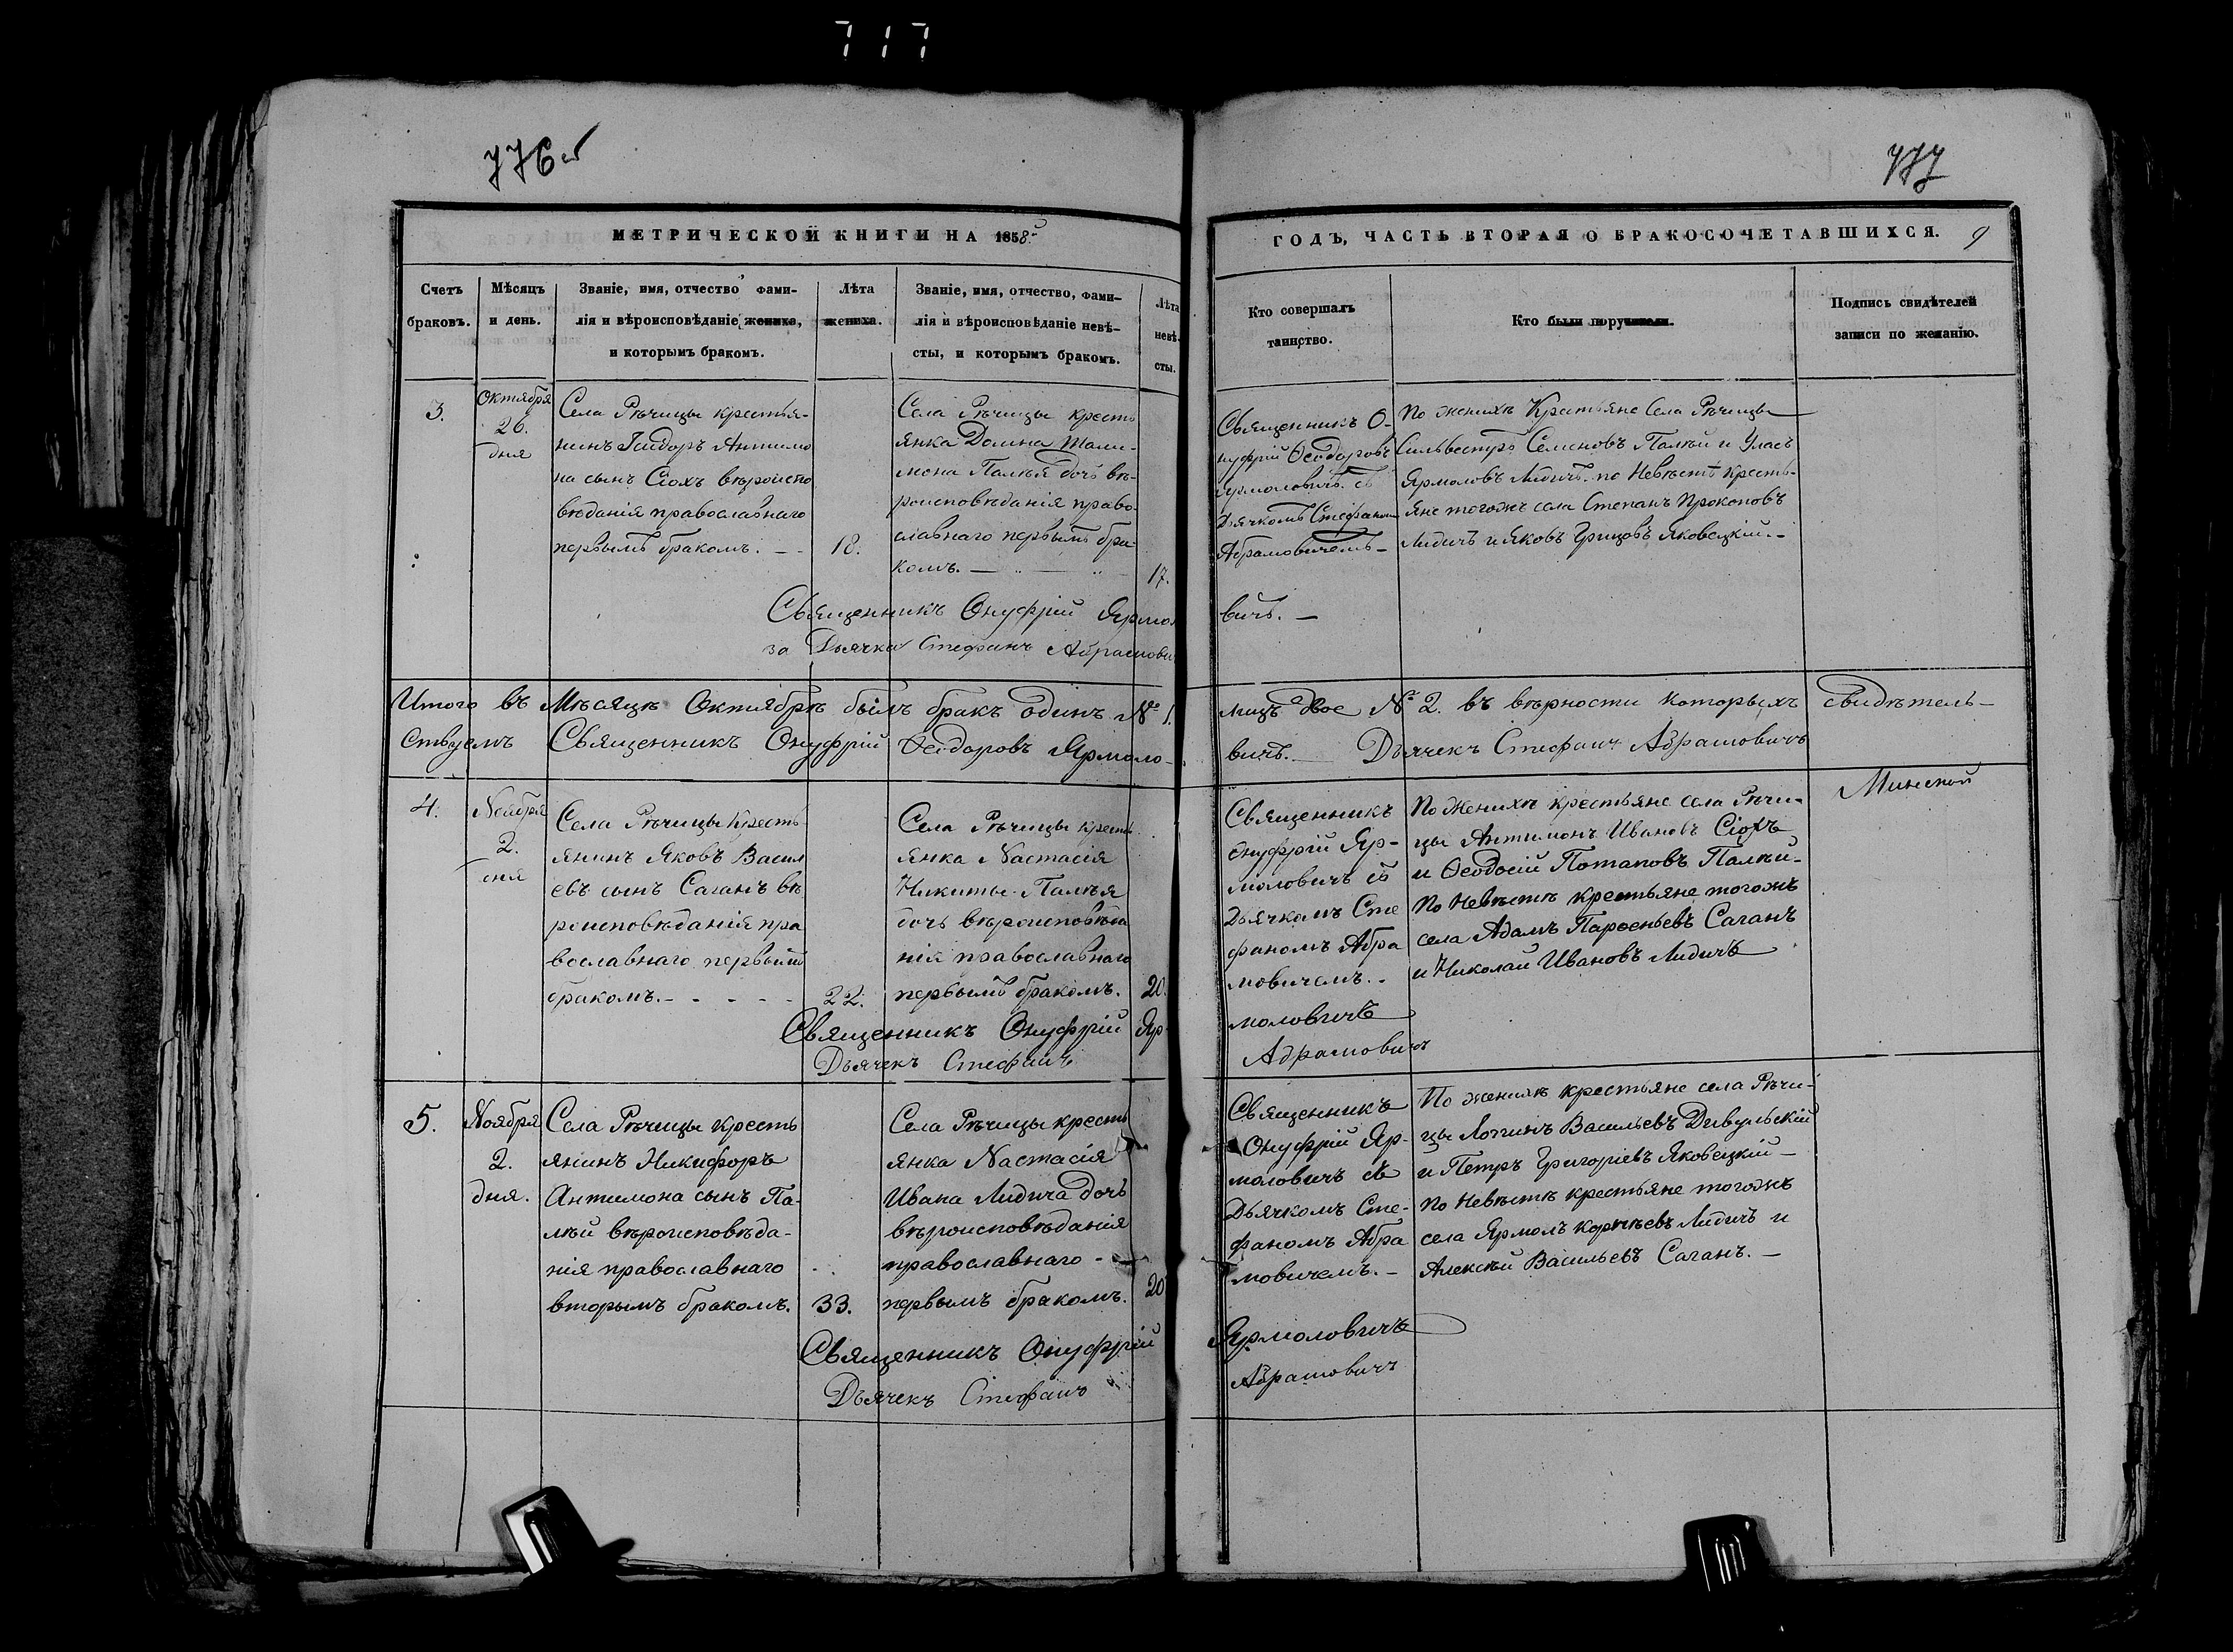 717
776 об
777
МЕТРИЧЕСКОЙ КНИГИ НА 1858й
ГОДЪ, ЧАСТЬ ВТОРАЯ О БРАКОСОЧЕТАВШИХСЯ. 9
Счетъ
браковъ.
Мѣсяцъ
и день.
Званіе, имя, отчество фами-
лія и вѣроисповѣданіе жениха,
и которымъ бракомъ.
Лѣта
жениха.
Званіе, имя, отчество, фами-
лія и вѣроисповѣданіе невѣ-
сты, и которымъ бракомъ.
Лѣта
невѣ-
сты.
Кто совершалъ
таинство.
Кто были поручители.
Подпись свидѣтелей
записи по желанію.
3.
Октября
26.
дня
Села Рѣчицы крестья-
нинъ Исидоръ Антимо
на сынъ Сіохъ вѣроиспо
вѣданія православнаго
первымъ бракомъ. - -
18.
Села Рѣчицы кресть
янка Домина
Палѣя дочь вѣ-
роисповѣданія право-
славнаго первымъ бра-
комъ.
17.
Священникъ О-
нуфрій Ѳеодоровъ
Ярмоловичъ съ
Дьячкомъ Стефаномъ
Абрамовичемъ -
По женихѣ Крестьяне Села Рѣчицы
Сильвестръ Семеновъ Палѣй и Уласъ
Ярмоловъ Лидичъ. по Невѣстѣ Кресть-
яне тогожъ села Степанъ Прокоповъ
Лидичъ и Яковъ Грицовъ Яковецкій. -
Священникъ Онуфрій Ярмоло
вичъ. -
за Дьячка Стефанъ Абрамовичъ
Итого въ Мѣсяцѣ Октябрѣ былъ бракъ одинъ № 1.
лицъ двое № 2. въ вѣрности которыхъ свидѣтель-
ствуемъ Священникъ Онуфрій Ѳеодоровъ Ярмоло-
вичъ. Дьячекъ Стефанъ Абрамовичъ
4.
Ноября
2.
дня
Села Рѣчицы Кресть
янинъ Яковъ Васил
евъ сынъ Саганъ вѣ
роисповѣданія пра
вославнаго первымъ
бракомъ. - - - - -
22.
Села Рѣчицы кресть
янка Настасія
Никиты Палѣя
дочь вѣроисповѣда
нія православнаго
первымъ бракомъ.
20.
Священникъ
Онуфрій Яр-
моловичъ съ
Дьячкомъ Сте
фаномъ Абра
мовичемъ. -
По Женихѣ крестьяне села Рѣчи-
цы Антимонъ Ивановъ Сіохъ
и Ѳеодосій Потаповъ Палѣй -
По Невѣстѣ крестьяне тогожъ
села Адамъ Парѳеньевъ Саганъ
и Николай Ивановъ Лидичъ
Минской
Священникъ Онуфрій Яр-
моловичъ
Дьячекъ Стефанъ
Абрамовичъ
5.
Ноября
2.
дня.
Села Рѣчицы кресть
янинъ Никифоръ
Антимона сынъ Па-
лѣй вѣроисповѣда-
нія православнаго
вторымъ бракомъ.
33.
Села Рѣчицы кресть
янка Настасія
Ивана Лидича дочь
вѣроисповѣданія
православнаго -
первымъ бракомъ.
20
Священникъ
Онуфрій Яр-
моловичъ съ
Дьячкомъ Сте-
фаномъ Абра
мовичемъ. -
По женихѣ крестьяне села Рѣчи-
цы Логинъ Васильевъ Дивульскій
и Петръ Григоріевъ Яковецкій -
По Невѣстѣ крестьяне тогожъ
села Ярмолъ Корнѣевъ Лидичъ и
Алексѣй Васильевъ Саганъ. -
Священникъ Онуфрій
Ярмоловичъ
Дьячекъ Стефанъ
Абрамовичъ